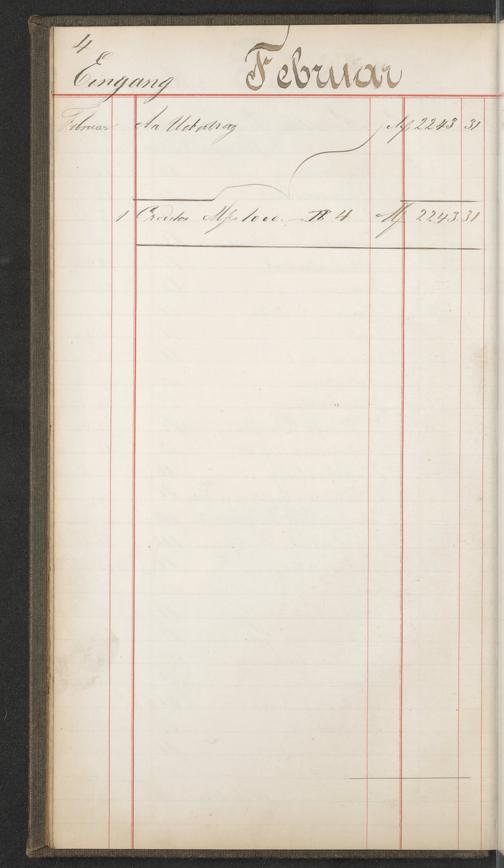 4
Eingang Februar
Februar An Uebertrag M 2243 31
1 1000. 4 M 2243 31